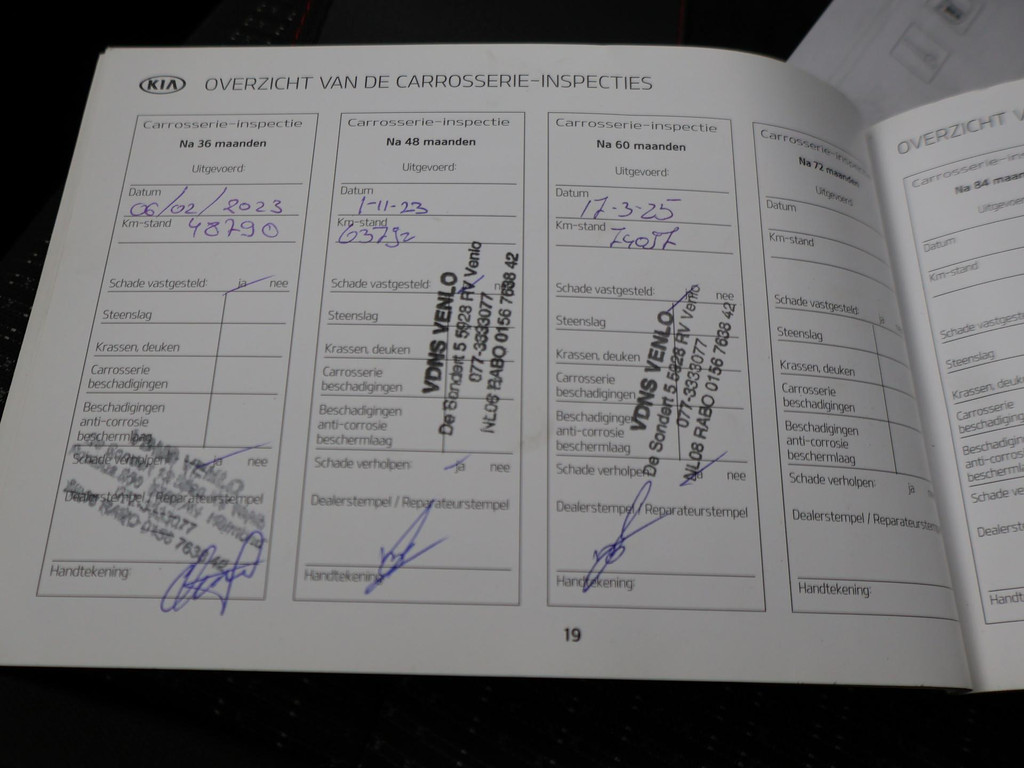 KIA OVERZICHT VAN DE CARROSSERIE-INSPECTIES
Carrosserie-inspectie
Na 36 maanden
Uitgevoerd:
Datum
06/02/2023
Km-stand 48790
Schade vastgesteld: ja nee
Steenslag
Krassen, deuken
Carrosserie
beschadigingen
Beschadigingen
anti-corrosie
beschermlaag
Schade verholpen: ja nee
Dealerstempel / Reparateurstempel
Handtekening:
Carrosserie-inspectie
Na 48 maanden
Uitgevoerd:
Datum
1-11-23
Km-stand
63792
Schade vastgesteld:
Steenslag
Krassen, deuken
Carrosserie
beschadigingen
Beschadigingen
anti-corrosie
beschermlaag
VDNS VENLO
De Sondert 5 5928 RV Venlo
077-3333077
NL08 RABO 0156 7638 42
Schade verholpen: ja nee
Dealerstempel / Reparateurstempel
Handtekening:
Carrosserie-inspectie
Na 60 maanden
Uitgevoerd:
Datum
17-3-25
Km-stand 74057
Schade vastgesteld: nee
Steenslag
Krassen, deuken
Carrosserie
beschadigingen
Beschadigingen
anti-corrosie
beschermlaag
VDNS VENLO
De Sondert 5 5928 RV Venlo
077-3333077
NL08 RABO 0156 7638 42
Schade verholpen: ja nee
Dealerstempel / Reparateurstempel
Handtekening:
Carrosserie-inspectie
Na 72 maanden
Uitgevoerd:
Datum
Km-stand
Schade vastgesteld: ja
Steenslag
Krassen, deuken
Carrosserie
beschadigingen
Beschadigingen
anti-corrosie
beschermlaag
Schade verholpen: ja
Dealerstempel / Reparateurstem
Handtekening:
19
OVERZICHT V
Carrosserie-in
Na 84 maan
Uitgevoerd
Datum:
Km-stand:
Schade vastgeste
Steenslag
Krassen, deuke
Carrosserie
beschadiging
Beschadigin
anti-corros
beschermla
Schade ve
Dealerst
Handt